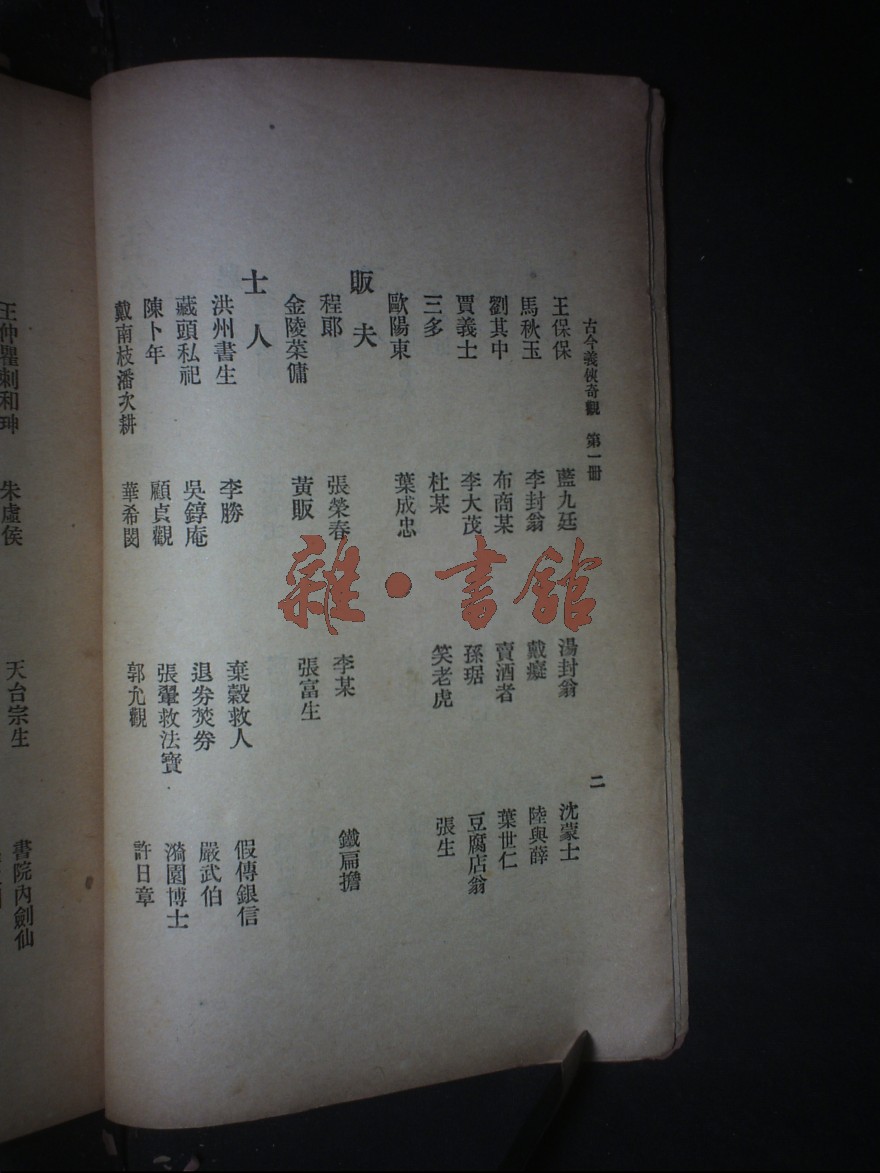 古今義俠奇觀 第一册
二
王保保 藍九廷 湯封翁 沈蒙士
馬秋玉 李封翁 戴癡 陸與薛
劉其中 布商某 賣酒者 葉世仁
賈義士 李大茂 孫琚 豆腐店翁
三多 杜某 笑老虎 張生
歐陽東 葉成忠
販夫
程郎 張榮春 李某 鐵扁擔
金陵菜傭 黃販 張富生
士人
洪州書生 李勝 棄穀救人 假傳銀信
藏頭私祀 吳錞庵 退券焚券 嚴武伯
陳卜年 顧貞觀 張翬救法寶 漪園博士
戴南枝潘次耕 華希閔 郭允觀 許日章
王仲瞿刺和珅 朱虛侯 天台宗生 書院內劍仙
雜·書館